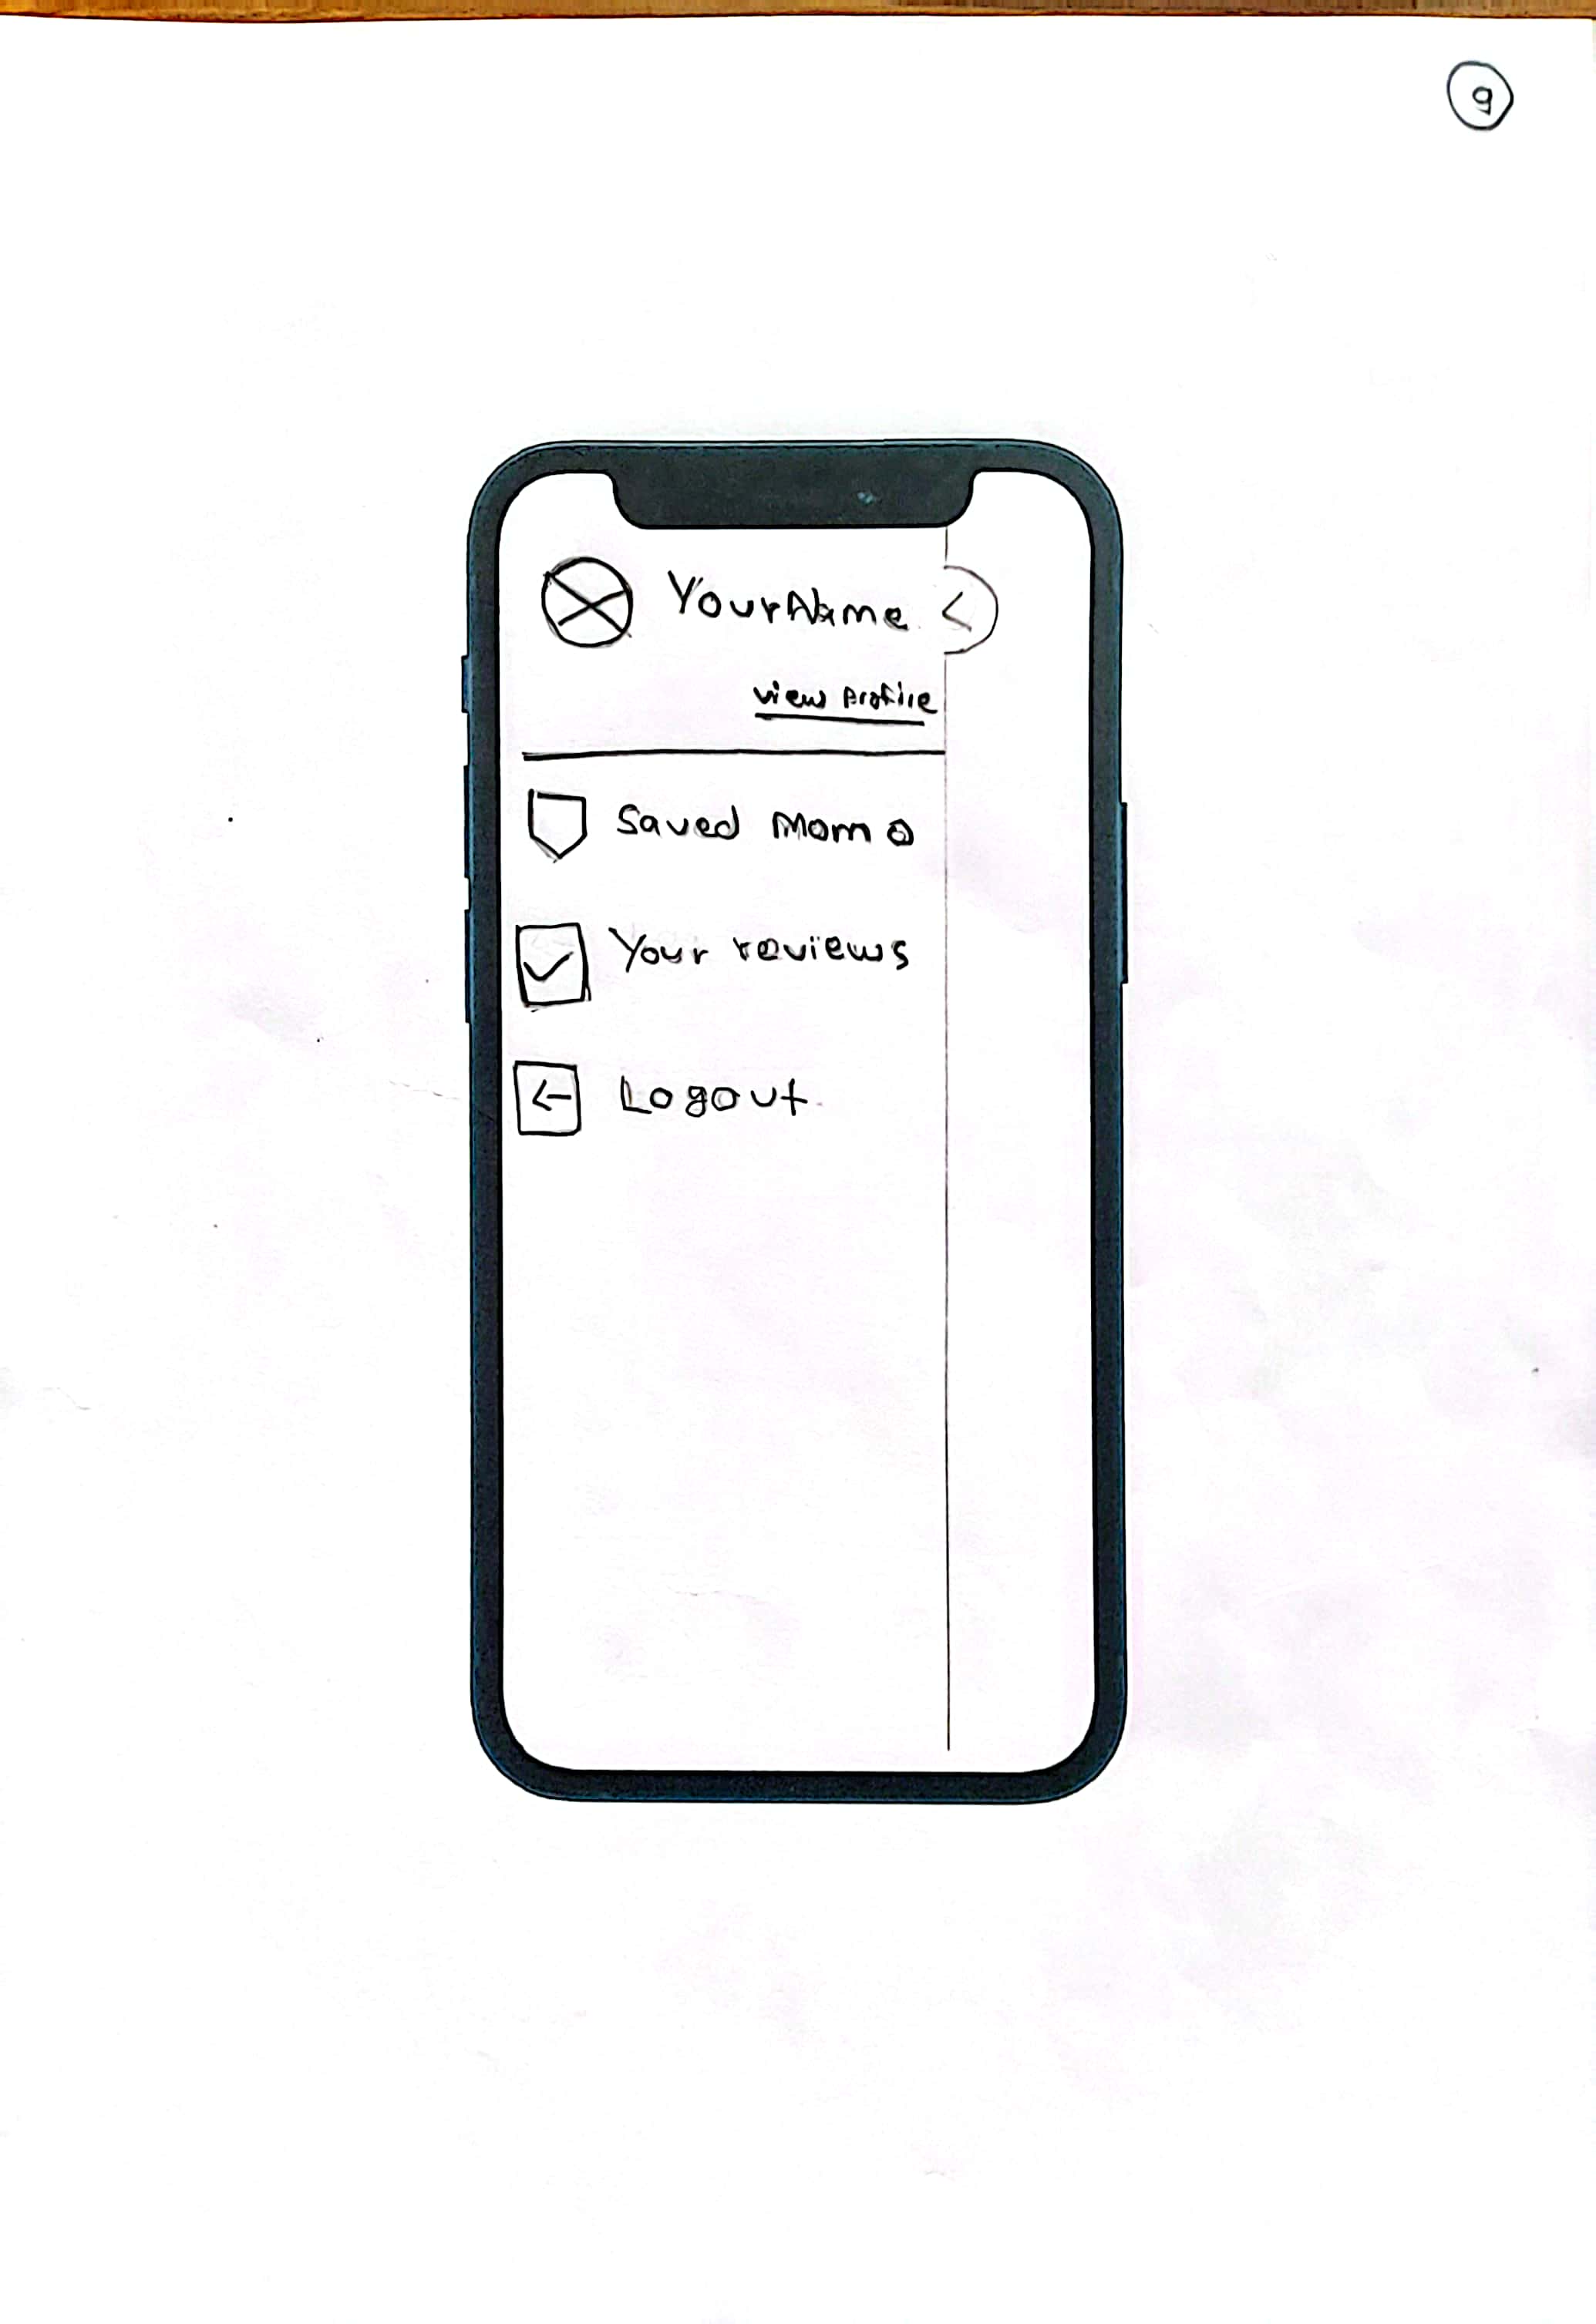 9
Your Name <
view profile
Saved Momo
Your reviews
Logout